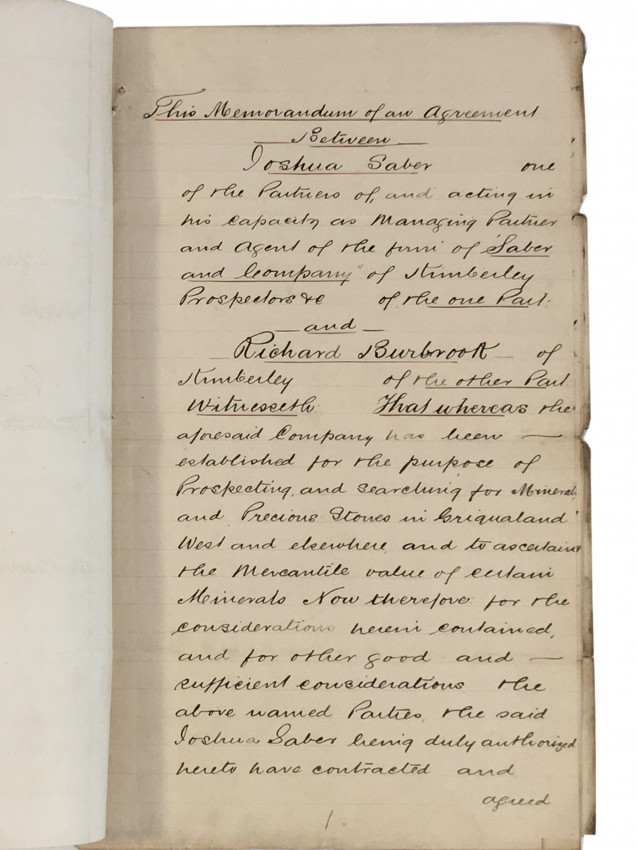 This Memorandum of an Agreement
Between
Joshua Saber one
of the Partners of, and acting in
his capacity as Managing Partner
and Agent of the firm of "Saber
and Company" of Kimberley
Prospectors &c of the one Part.
and
Richard Burbrook of
Kimberley of the other Part
Witnesseth That whereas the
aforesaid Company has been
established for the purpose of
Prospecting, and searching for Minerals
and Precious Stones in Griqualand
West and elsewhere and to ascertain
the Mercantile value of certain
Minerals Now therefore for the
considerations herein contained,
and for other good and
sufficient considerations the
above named Parties, the said
Joshua Saber being duly authorized
hereto have contracted and
agreed
1